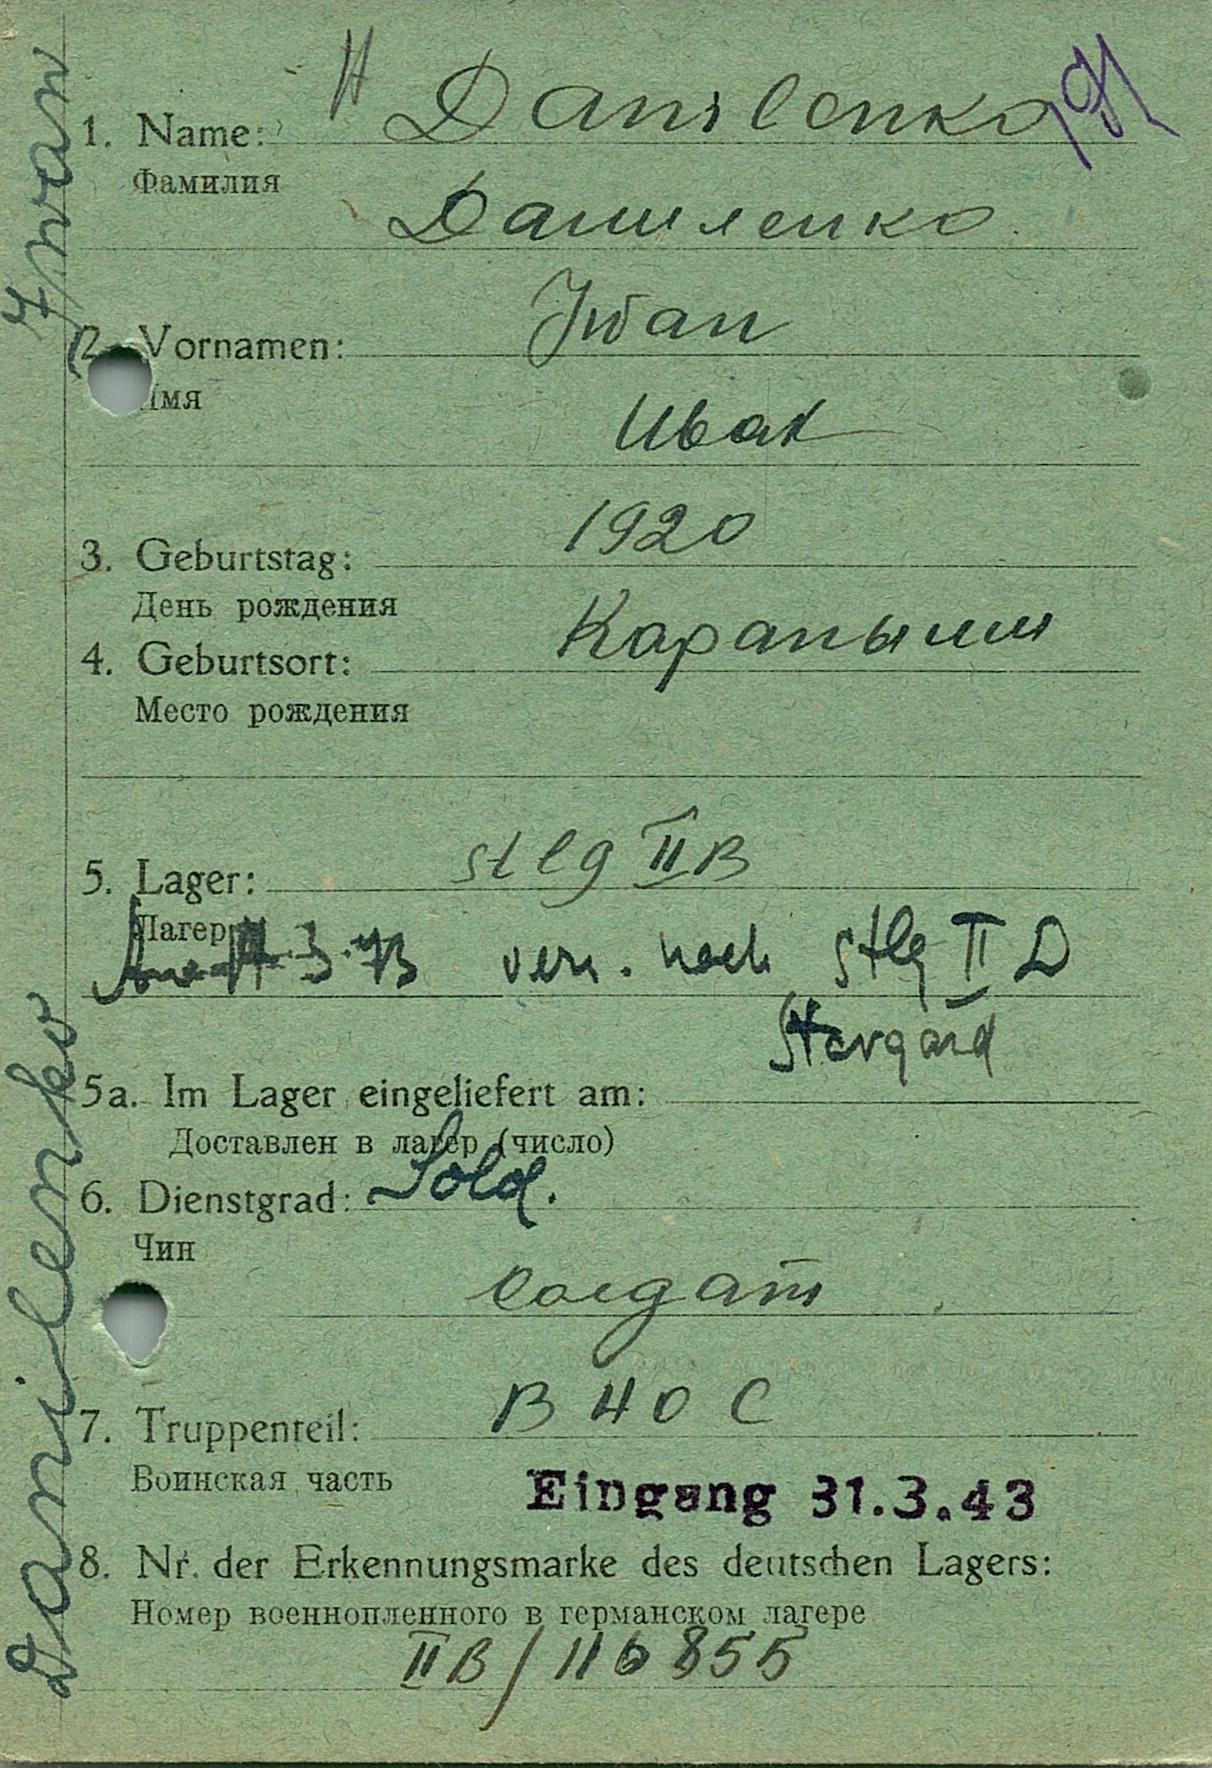 Danilenko
1. Name:
Фамилия
Даниленко
2. Vornamen: Iwan
Имя
Иван
3. Geburtstag: 1920
День рождения
4. Geburtsort: Карапыши
Место рождения
5. Lager: Stlg II B
Лагер
3. 43 vers. nach Stlg II D
Stargard
5a. Im Lager eingeliefert am:
Доставлен в лагер (число)
6. Dienstgrad: Sold.
Чин
Солдат
7. Truppenteil: В 40 С
Воинская часть
Eingang 31.3.43
8. Nr. der Erkennungsmarke des deutschen Lagers:
Номер военнопленного в германском лагере
II B / 116855
Danilenko Iwan